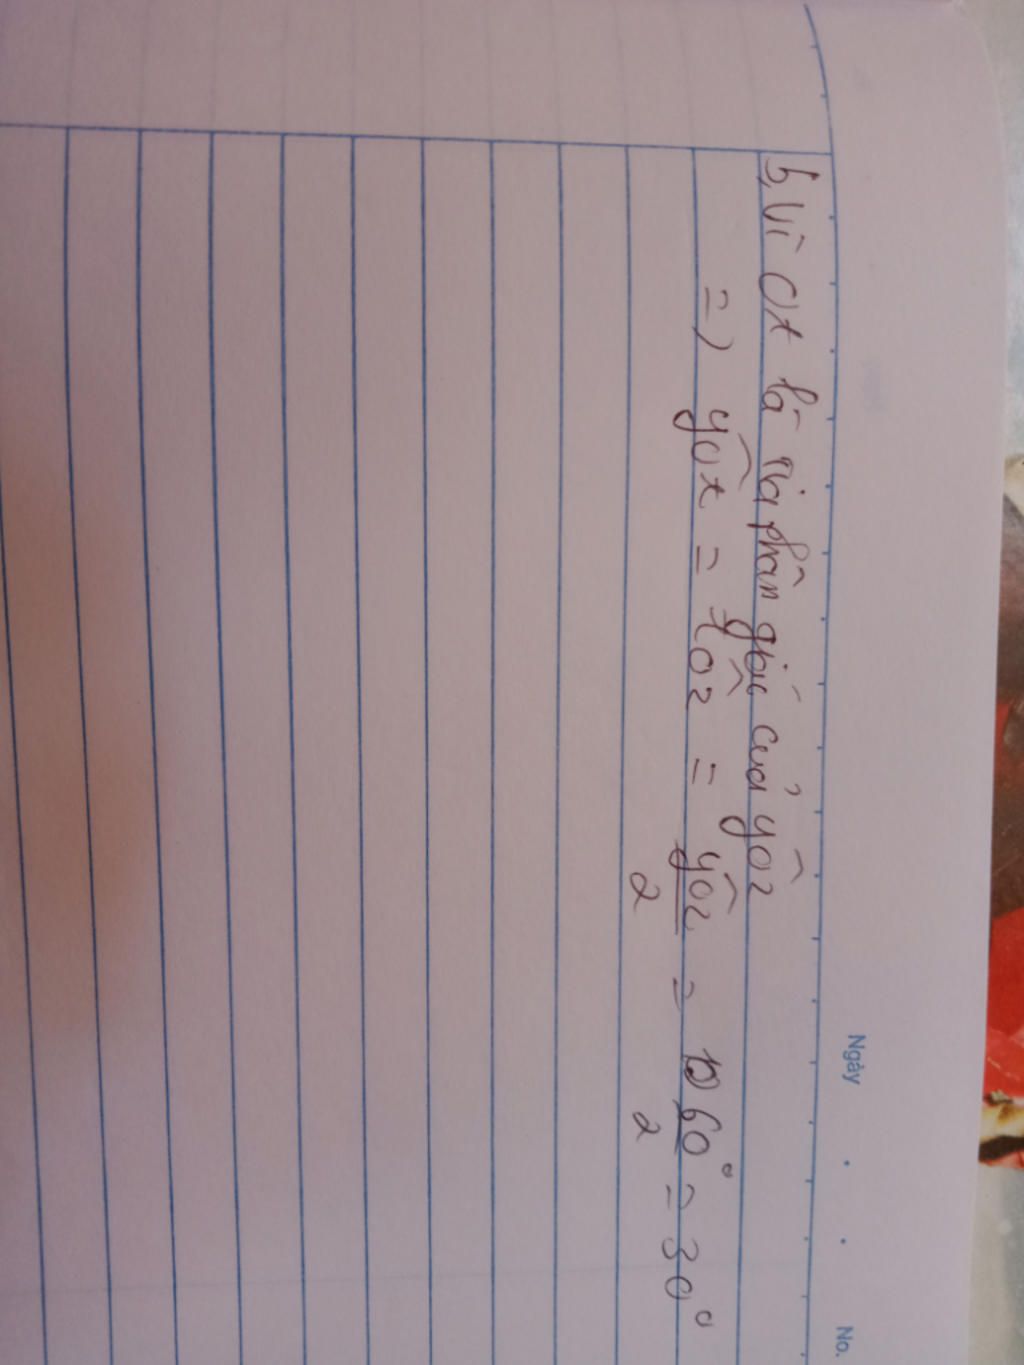 Ngày . . No.
b, Vì Ot là tia phân giác của yôz
=) yôt = tôz = yôz/2 = 60°/2 = 30°